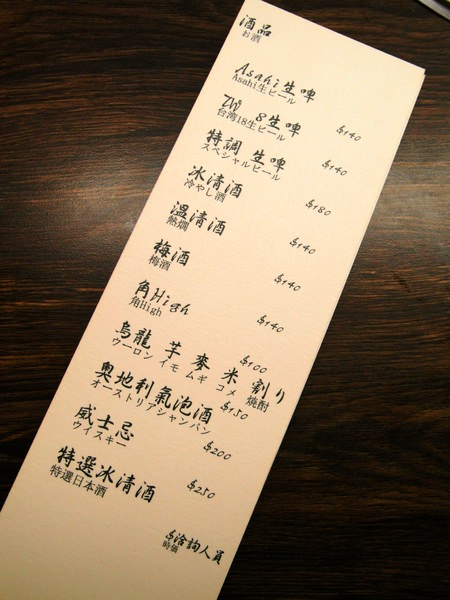 酒品
お酒
Asahi生啤 $140
Asahi生ビール
TW 8生啤 $140
台湾18生ビール
特調 生啤 $180
スペシャルビール
冰清酒 $140
冷やし酒
溫清酒 $140
熱燗
梅酒 $140
梅酒
角High $100
角High
烏龍 芋 麥 米 割り $150
ウーロン イモ ムギ コメ 焼酎
奧地利氣泡酒 $200
オーストリアシャンパン
威士忌 $250
ウイスキー
特選冰清酒 $洽詢人員
特選日本酒 時価